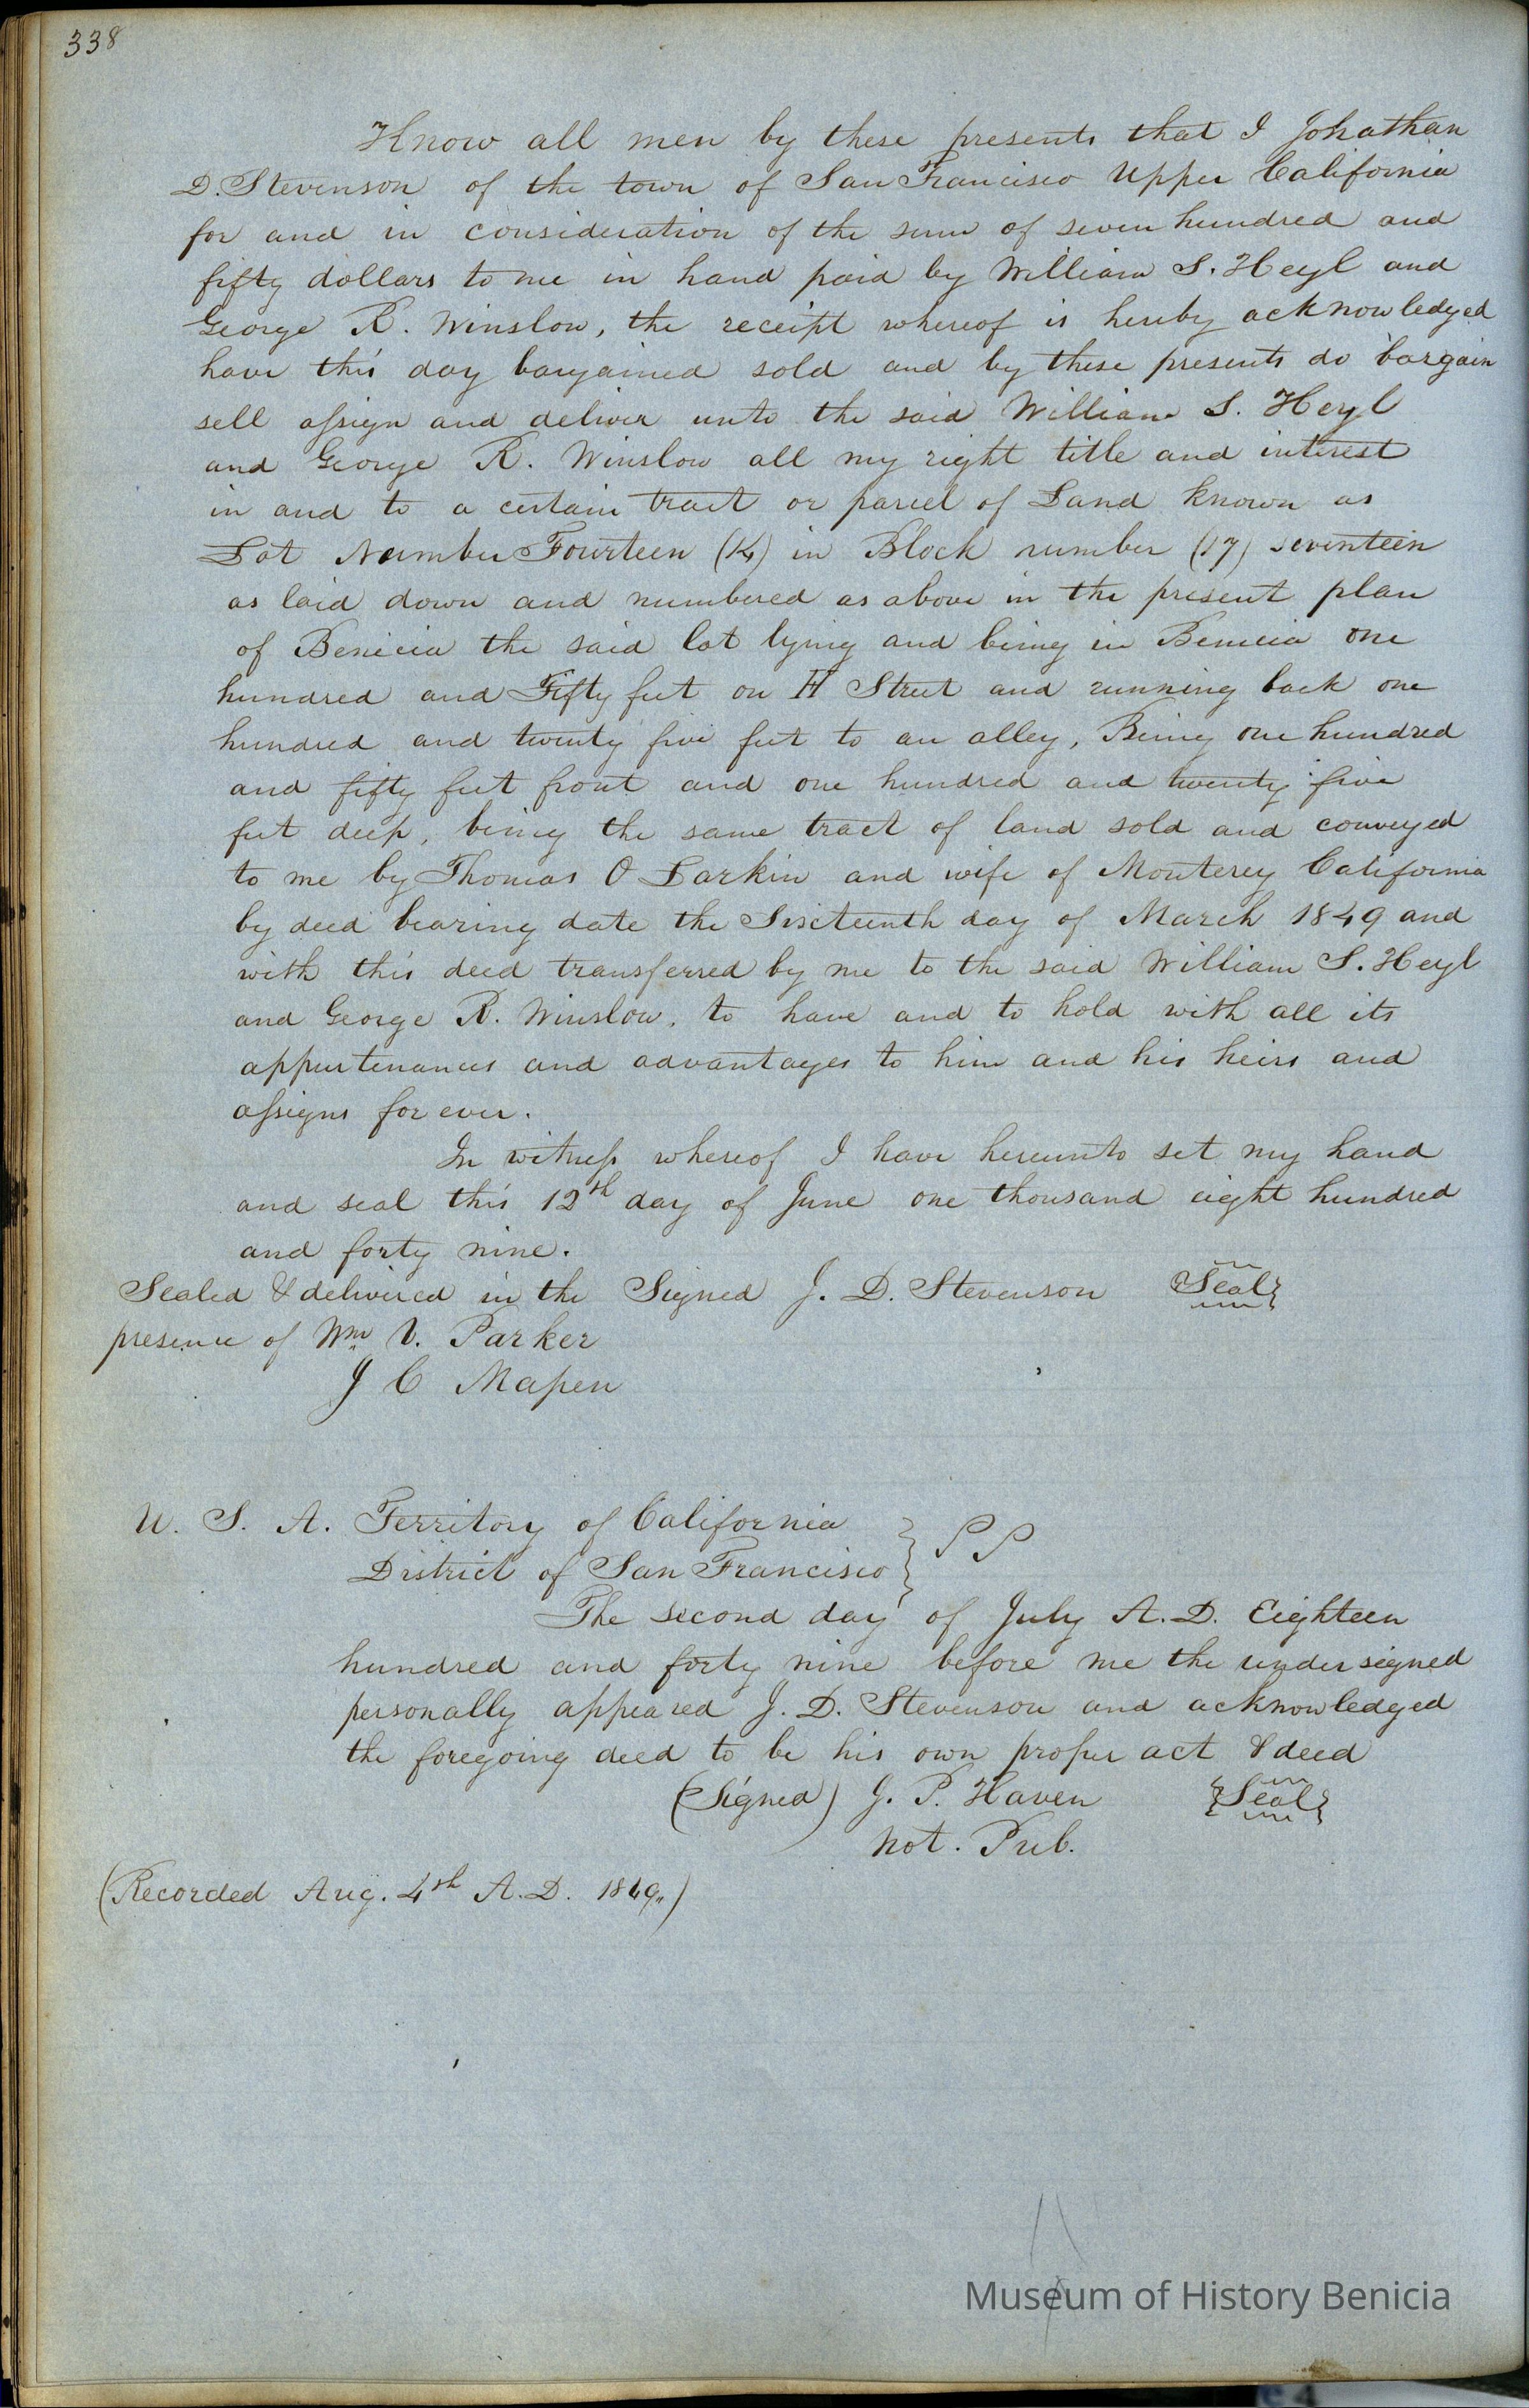 338
Know all men by these presents that I Johathan
D. Stevenson of the town of San Francisco Upper California
for and in consideration of the sum of seven hundred and
fifty dollars to me in hand paid by William S. Heyl and
George R. Winslow, the receipt whereof is hereby acknowledged
have this day bargained sold and by these presents do bargain
sell assign and deliver unto the said William S. Heyl
and George R. Winslow all my right title and interest
in and to a certain tract or parcel of Land known as
Lot Number Fourteen (14) in Block number (17) seventeen
as laid down and numbered as above in the present plan
of Benicia the said lot lying and being in Benicia one
hundred and Fifty feet on H Street and running back one
hundred and twenty five feet to an alley, Being one hundred
and fifty feet front and one hundred and twenty five
feet deep, being the same tract of land sold and conveyed
to me by Thomas O Larkin and wife of Monterey California
by deed bearing date the Sixteenth day of March 1849 and
with this deed transferred by me to the said William S. Heyl
and George R. Winslow, to have and to hold with all its
appurtenances and advantages to him and his heirs and
assigns for ever.
In witness whereof I have hereunto set my hand
and seal this 12th day of June one thousand eight hundred
and forty nine.
Sealed & delivered in the Signed J. D. Stevenson Seal
presence of Wm V. Parker
J C Mapen
U. S. A. Territory of California
District of San Francisco } SS
The second day of July A.D. Eighteen
hundred and forty nine before me the undersigned
personally appeared J. D. Stevenson and acknowledged
the foregoing deed to be his own proper act & deed
(Signed) J. P. Haven Seal
Not. Pub.
(Recorded Aug. 4th A.D. 1849.)
Museum of History Benicia